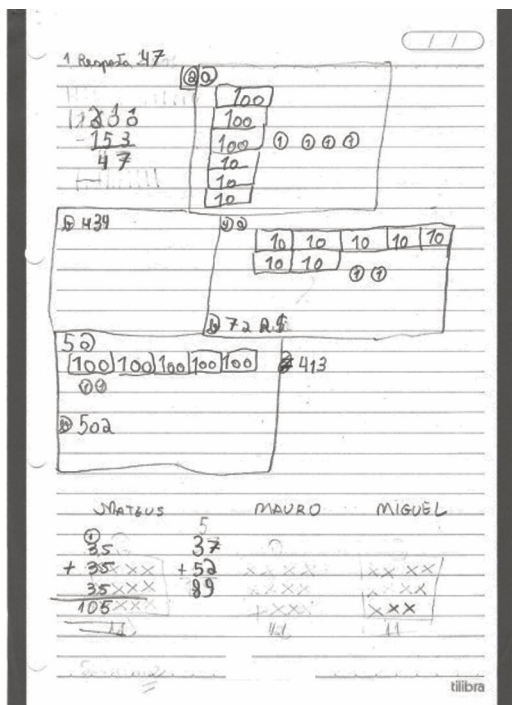 1 Resposta 47
200
- 153
47
a)
100
100
100 1 1 1 1
10
10
10
b) 439
4 a)
10 10 10 10 10
10 10
1 1
b) 72 R$
5 a)
100 100 100 100 100
1 1
b) 502
413
MATEUS MAURO MIGUEL
1 5
35 37
+ 35 + 52
35 89
105
xx xx
xxx
xxx
11
tilibra